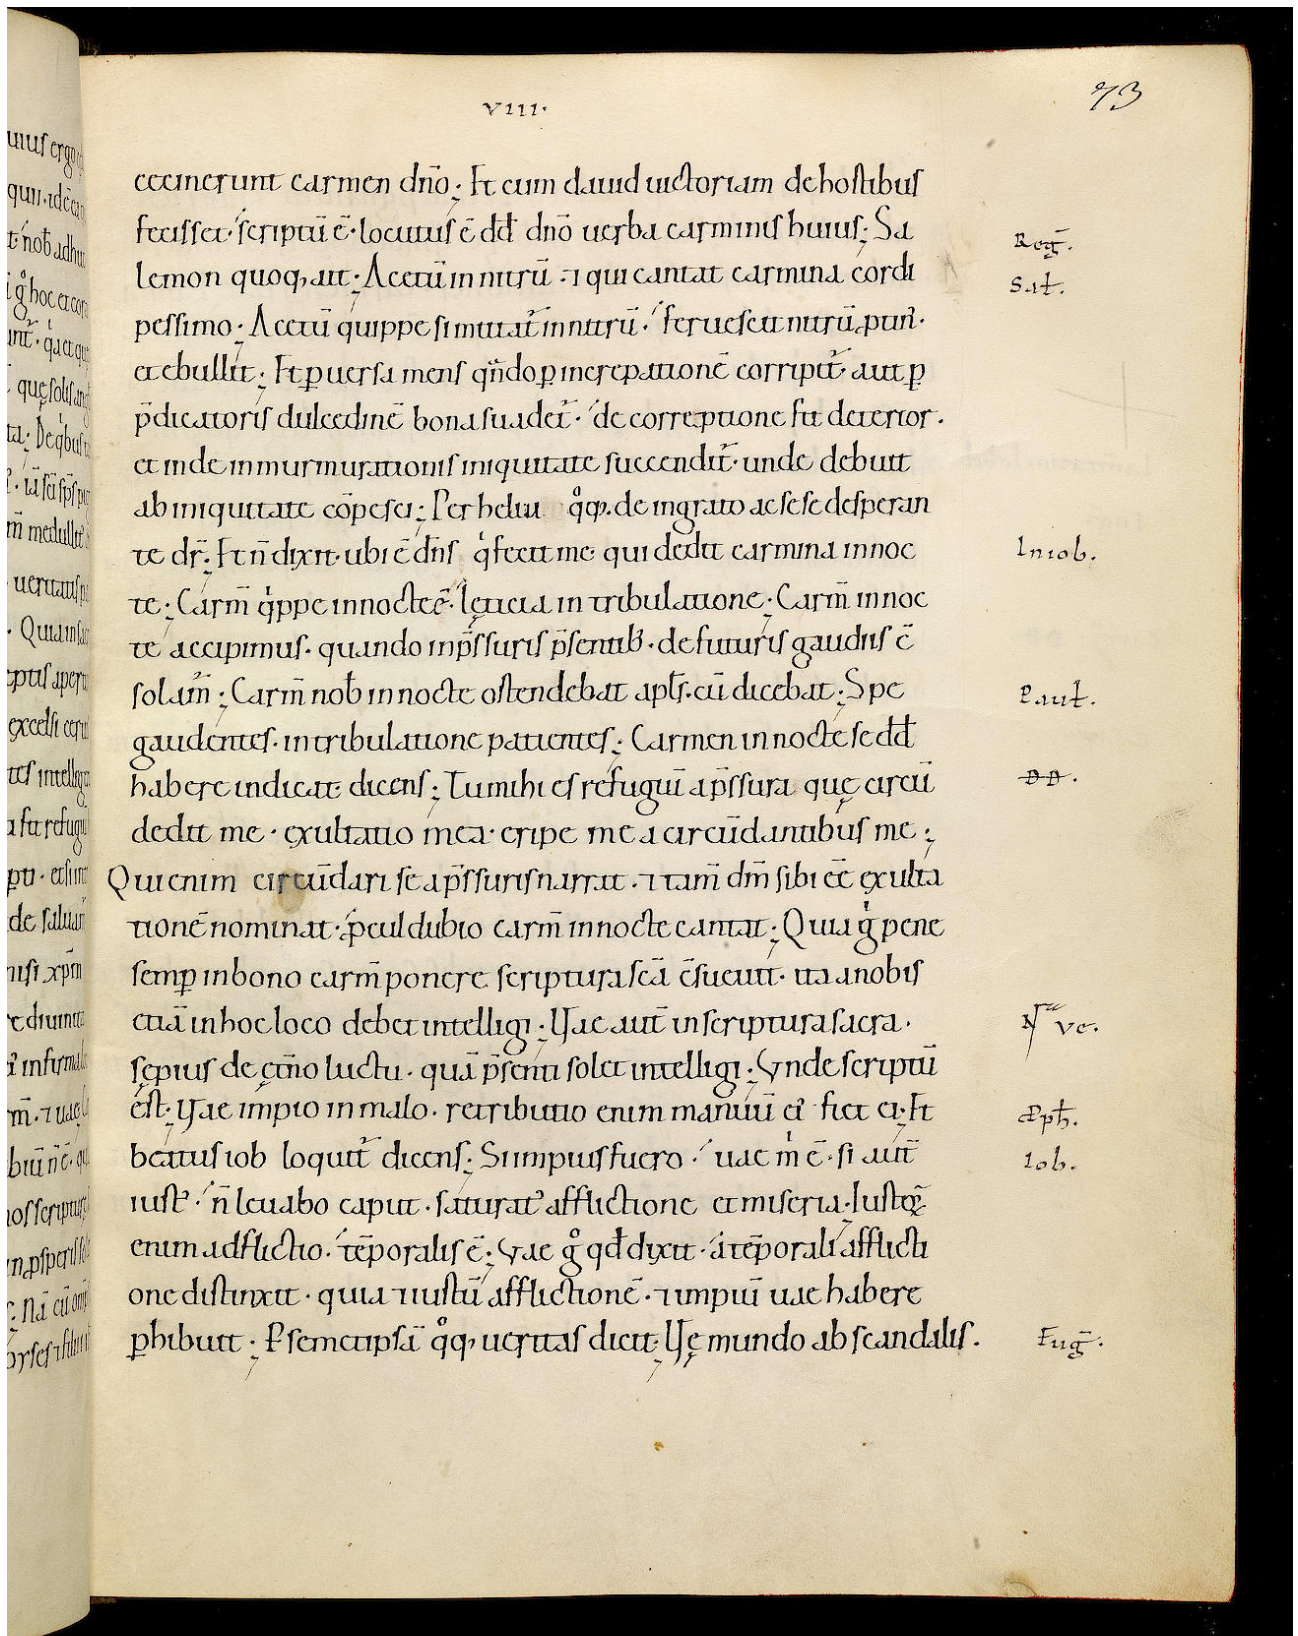 VIII·
73
cecinerunt carmen dnō; Et cum dauid uictoriam de hostibus
fecisset· scriptū ē· locutus ē dd̄ dnō uerba carminis huius; Sa
lemon quoq, ait; Acetū in nitrū · ⁊ qui cantat carmina cordi
pessimo; Acetū quippe si mittat̄ in nitrū · feruescit nitrū ꝓtin̄·
et ebullit; Et ꝑuersa mens qn̄do ꝑ increpationē corripit̄· aut ꝑ
p̄dicatoris dulcedinē bona suadet̄· de correptione fit deterior.
et inde in murmurationis iniquitate succendit̄· unde debuit
ab iniquitate cōpesci; Per heliu qͦq;. de ingrato ac sese desperan
te dr̄; Et n̄ dixit· ubi ē dn̄s qͥ fecit me· qui dedit carmina in noc
te; Carm̄ qͥppe in nocte ē· lęticia in tribulatione; Carm̄ in noc
te accipimus· quando in p̄ssuris p̄sentib̄· de futuris gaudiis ē
solam̄; Carm̄ nob̄ in nocte ostendebat apls̄· cū dicebat; Spe
gaudentes· in tribulatione patientes; Carmen in nocte se dd̄
habere indicat dicens; Tu mihi es refugiū a p̄ssura quę circū
dedit me · exultatio mea· eripe me a circūdantibus me;
Qui enim circūdari se a p̄ssuris narrat · ⁊ tam̄ dm̄ sibi eē exulta
tionē nominat· ꝓcul dubio carm̄ in nocte cantat; Quia gͥ pene
semꝑ in bono carm̄ ponere scriptura scā c̄sueuit· ita a nobis
etiā in hoc loco debet intelligi; Uae aut̄ in scriptura sacra·
sępius de ęt̄no luctu· quā p̄senti solet intelligi; Vnde scriptū
est; Uae impio in malo· retributio enim manuū ei᾿ fiet ei; Et
beatus iob loquit̄ dicens; Si impius fuero· uae mͥ ē· si aut̄
iust᾿· n̄ leuabo caput· saturat᾿ afflictione et miseria· Iustoꝝ
enim adflictio· tēporalis ē; Vae gͦ qd̄ dixit· a tēporali afflicti
one distinxit· quia ⁊ iustū afflictionē· ⁊ impiū uae habere
ꝑhibuit; P semetipsā qͦq, ueritas dicit; Uę mundo ab scandalis.
Reḡ.
Sal̄.
In iob.
Paul̄.
DD.
N ve.
Eph̄.
Iob.
Euḡ.